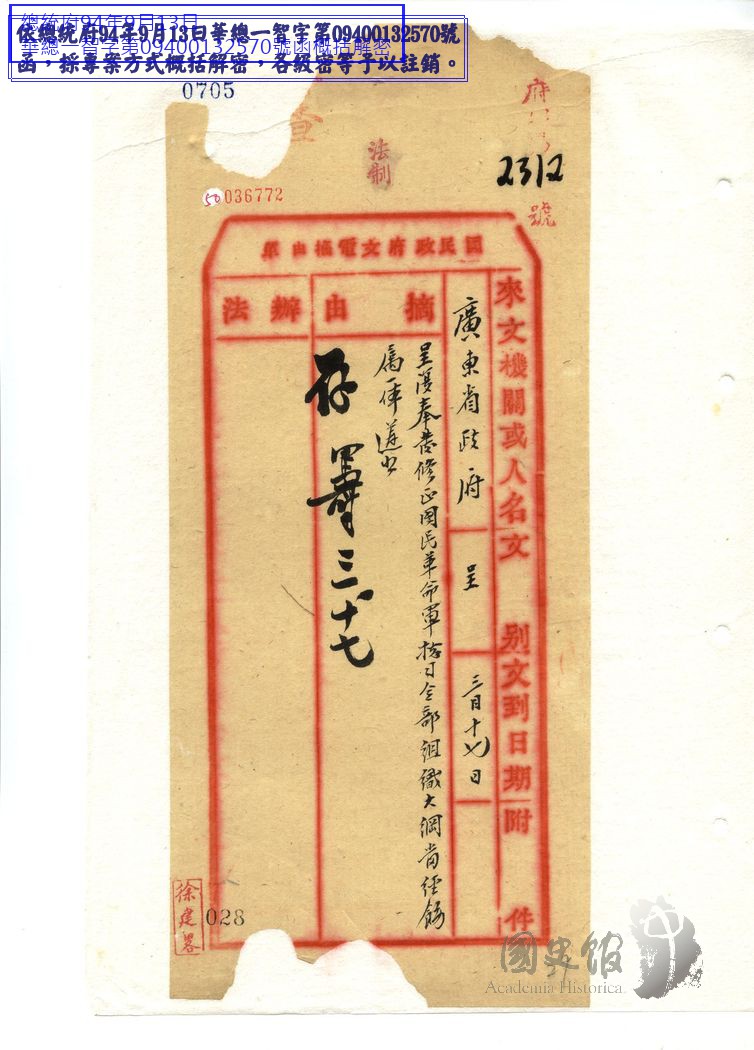 總統府94年9月13日
華總一智字第09400132570號函概括解密
依總統府94年9月13日華總一智字第09400132570號
函，採專案方式概括解密，各級密等予以註銷。
0705
府
2312
號
法制
50036772
國民政府文電摘由單
來文機關或人名
文別
文到日期
附件
廣東省政府
呈
三月十七日
摘由
呈復奉發修正國民革命軍總司令部組織大綱當經飭
屬一体遵照
辦法
存
三、十七
徐建畧
028
國史館
Academia Historica